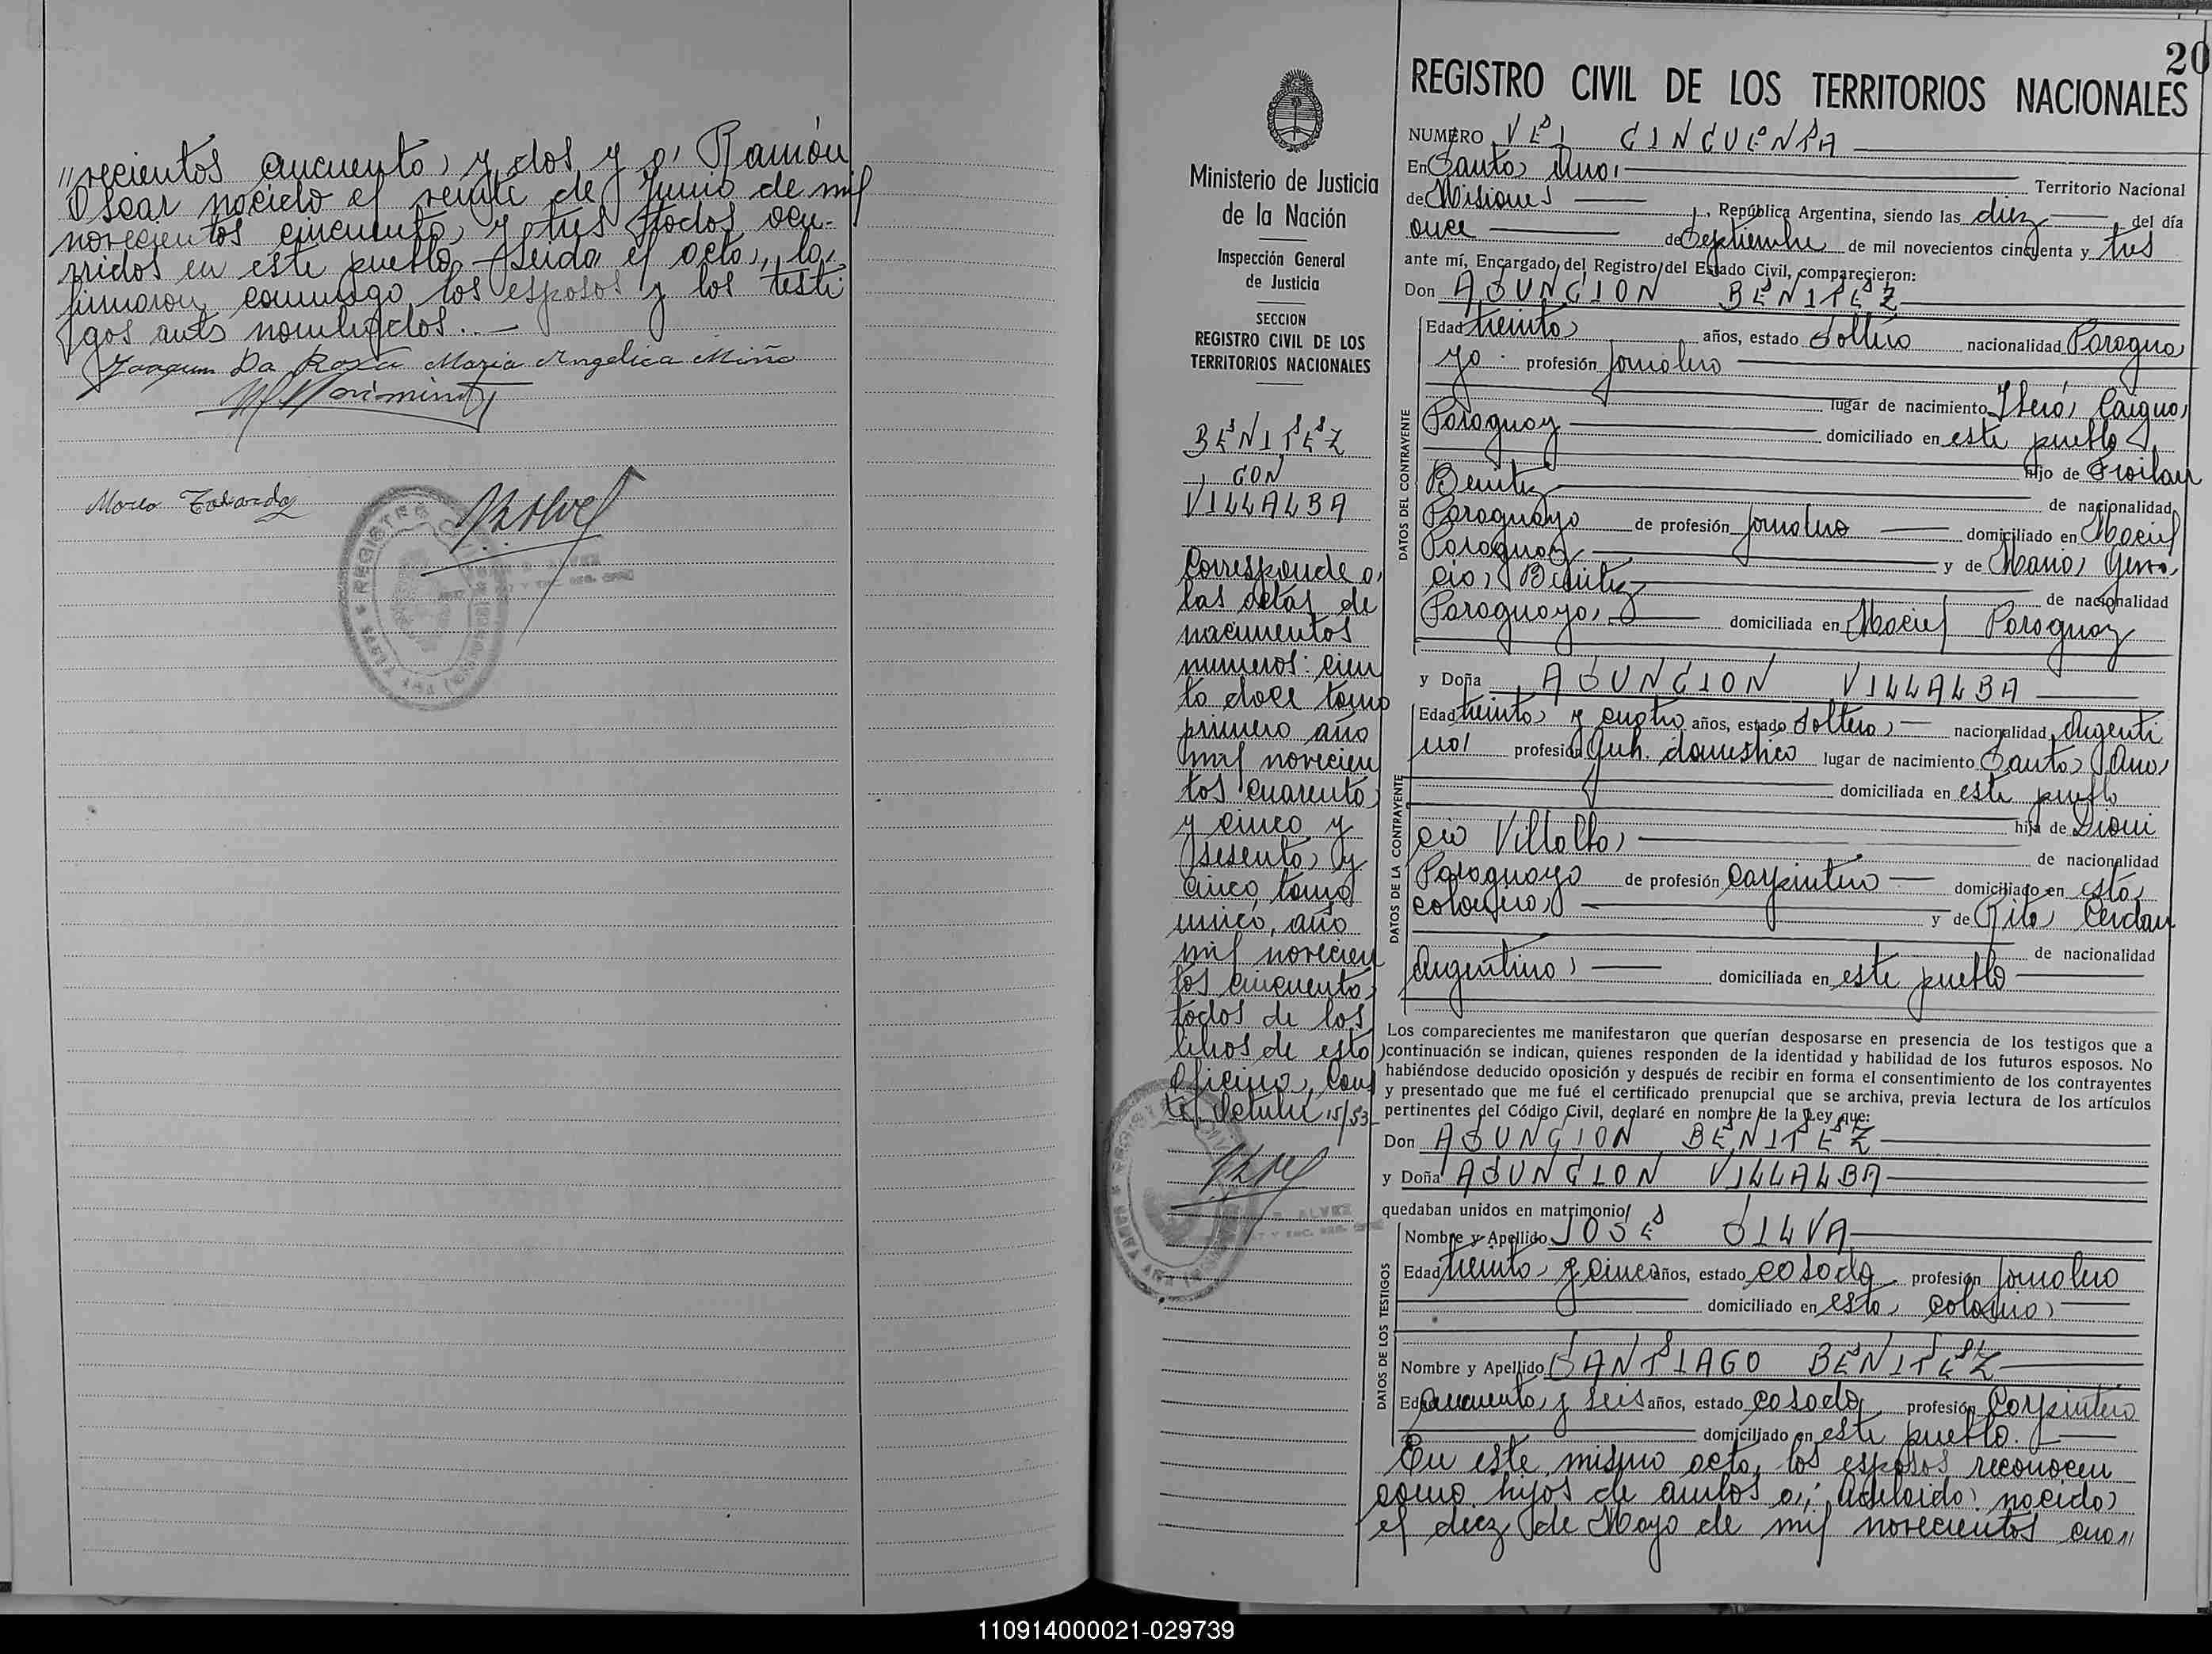 "recientos cincuenta y dos y a Ramón
Oscar nacido el veinte de Junio de mil
novecientos cincuenta y tres todos ocu-
rridos en este pueblo. Leida el acta, la
firmaron conmigo los esposos y los testi
gos antes nombrados.
Joaquin Da Rosa Maria Angelica Miño
20
REGISTRO CIVIL DE LOS TERRITORIOS NACIONALES
Ministerio de Justicia
de la Nación
Inspección General
de Justicia
SECCION
REGISTRO CIVIL DE LOS
TERRITORIOS NACIONALES
BENITEZ
CON
VILLALBA
Corresponde a
las actas de
nacimientos
numeros: cien
to doce tomo
primero año
mil novecien
tos cuarenta
y cinco y
sesenta y
cinco, tomo
unico, año
mil novecien
tos cincuenta,
todos de los
libros de esta
Oficina, Cons
te. Octubre 15/53
NUMERO CINCUENTA
En Santa Ana Territorio Nacional
de Misiones, República Argentina, siendo las diez del día
once de Septiembre de mil novecientos cincuenta y tres
ante mí, Encargado del Registro del Estado Civil, comparecieron:
Don ASUNCION BENITEZ
DATOS DEL CONTRAYENTE
Edad treinta años, estado soltero nacionalidad Paragua
yo profesión jornalero
lugar de nacimiento
Paraguay domiciliado en este pueblo
hijo de Froilan
Benitez de nacionalidad
Paraguayo de profesión jornalero domiciliado en Maciel
Paraguay y de Maria Gerva
cia Benitez de nacionalidad
Paraguaya domiciliada en Maciel Paraguay
y Doña ASUNCION VILLALBA
DATOS DE LA CONTRAYENTE
Edad treinta y cuatro años, estado soltera nacionalidad Argenti
na profesión Queh. domestico lugar de nacimiento Santa Ana
domiciliada en este pueblo
hija de Dioni
cio Villalba de nacionalidad
Paraguayo de profesión carpintero domiciliado en esta
colonia y de Rita Cerdan
de nacionalidad
Argentina domiciliada en este pueblo
Los comparecientes me manifestaron que querían desposarse en presencia de los testigos que a
continuación se indican, quienes responden de la identidad y habilidad de los futuros esposos. No
habiéndose deducido oposición y después de recibir en forma el consentimiento de los contrayentes
y presentado que me fué el certificado prenupcial que se archiva, previa lectura de los artículos
pertinentes del Código Civil, declaré en nombre de la Ley que:
Don ASUNCION BENITEZ
y Doña ASUNCION VILLALBA
quedaban unidos en matrimonio
DATOS DE LOS TESTIGOS
Nombre y Apellido JOSE SILVA
Edad treinta y cinco años, estado casado profesión jornalero
domiciliado en esta colonia
Nombre y Apellido SANTIAGO BENITEZ
Edad cincuenta y seis años, estado casado profesión Carpintero
domiciliado en este pueblo.
En este mismo acto, los esposos reconocen
como hijos de ambos a: Adelaida nacida
el diez de Mayo de mil novecientos cua"
110914000021-029739